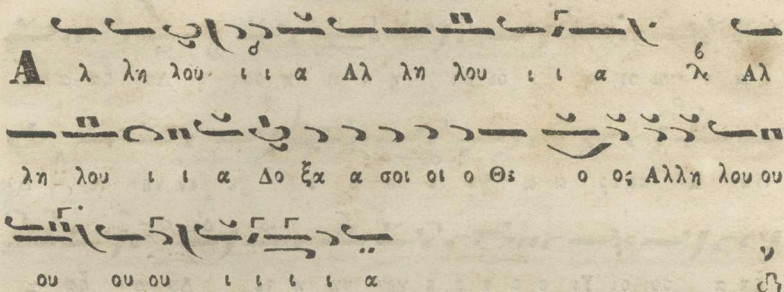 Α λ λη λου ι ι α Αλ λη λου ι ι α Αλ
λη λου ι ι α Δο ξα α σοι οι ο Θε ο ος Αλλη λου ου
ου ου ου ι ι ι ι α